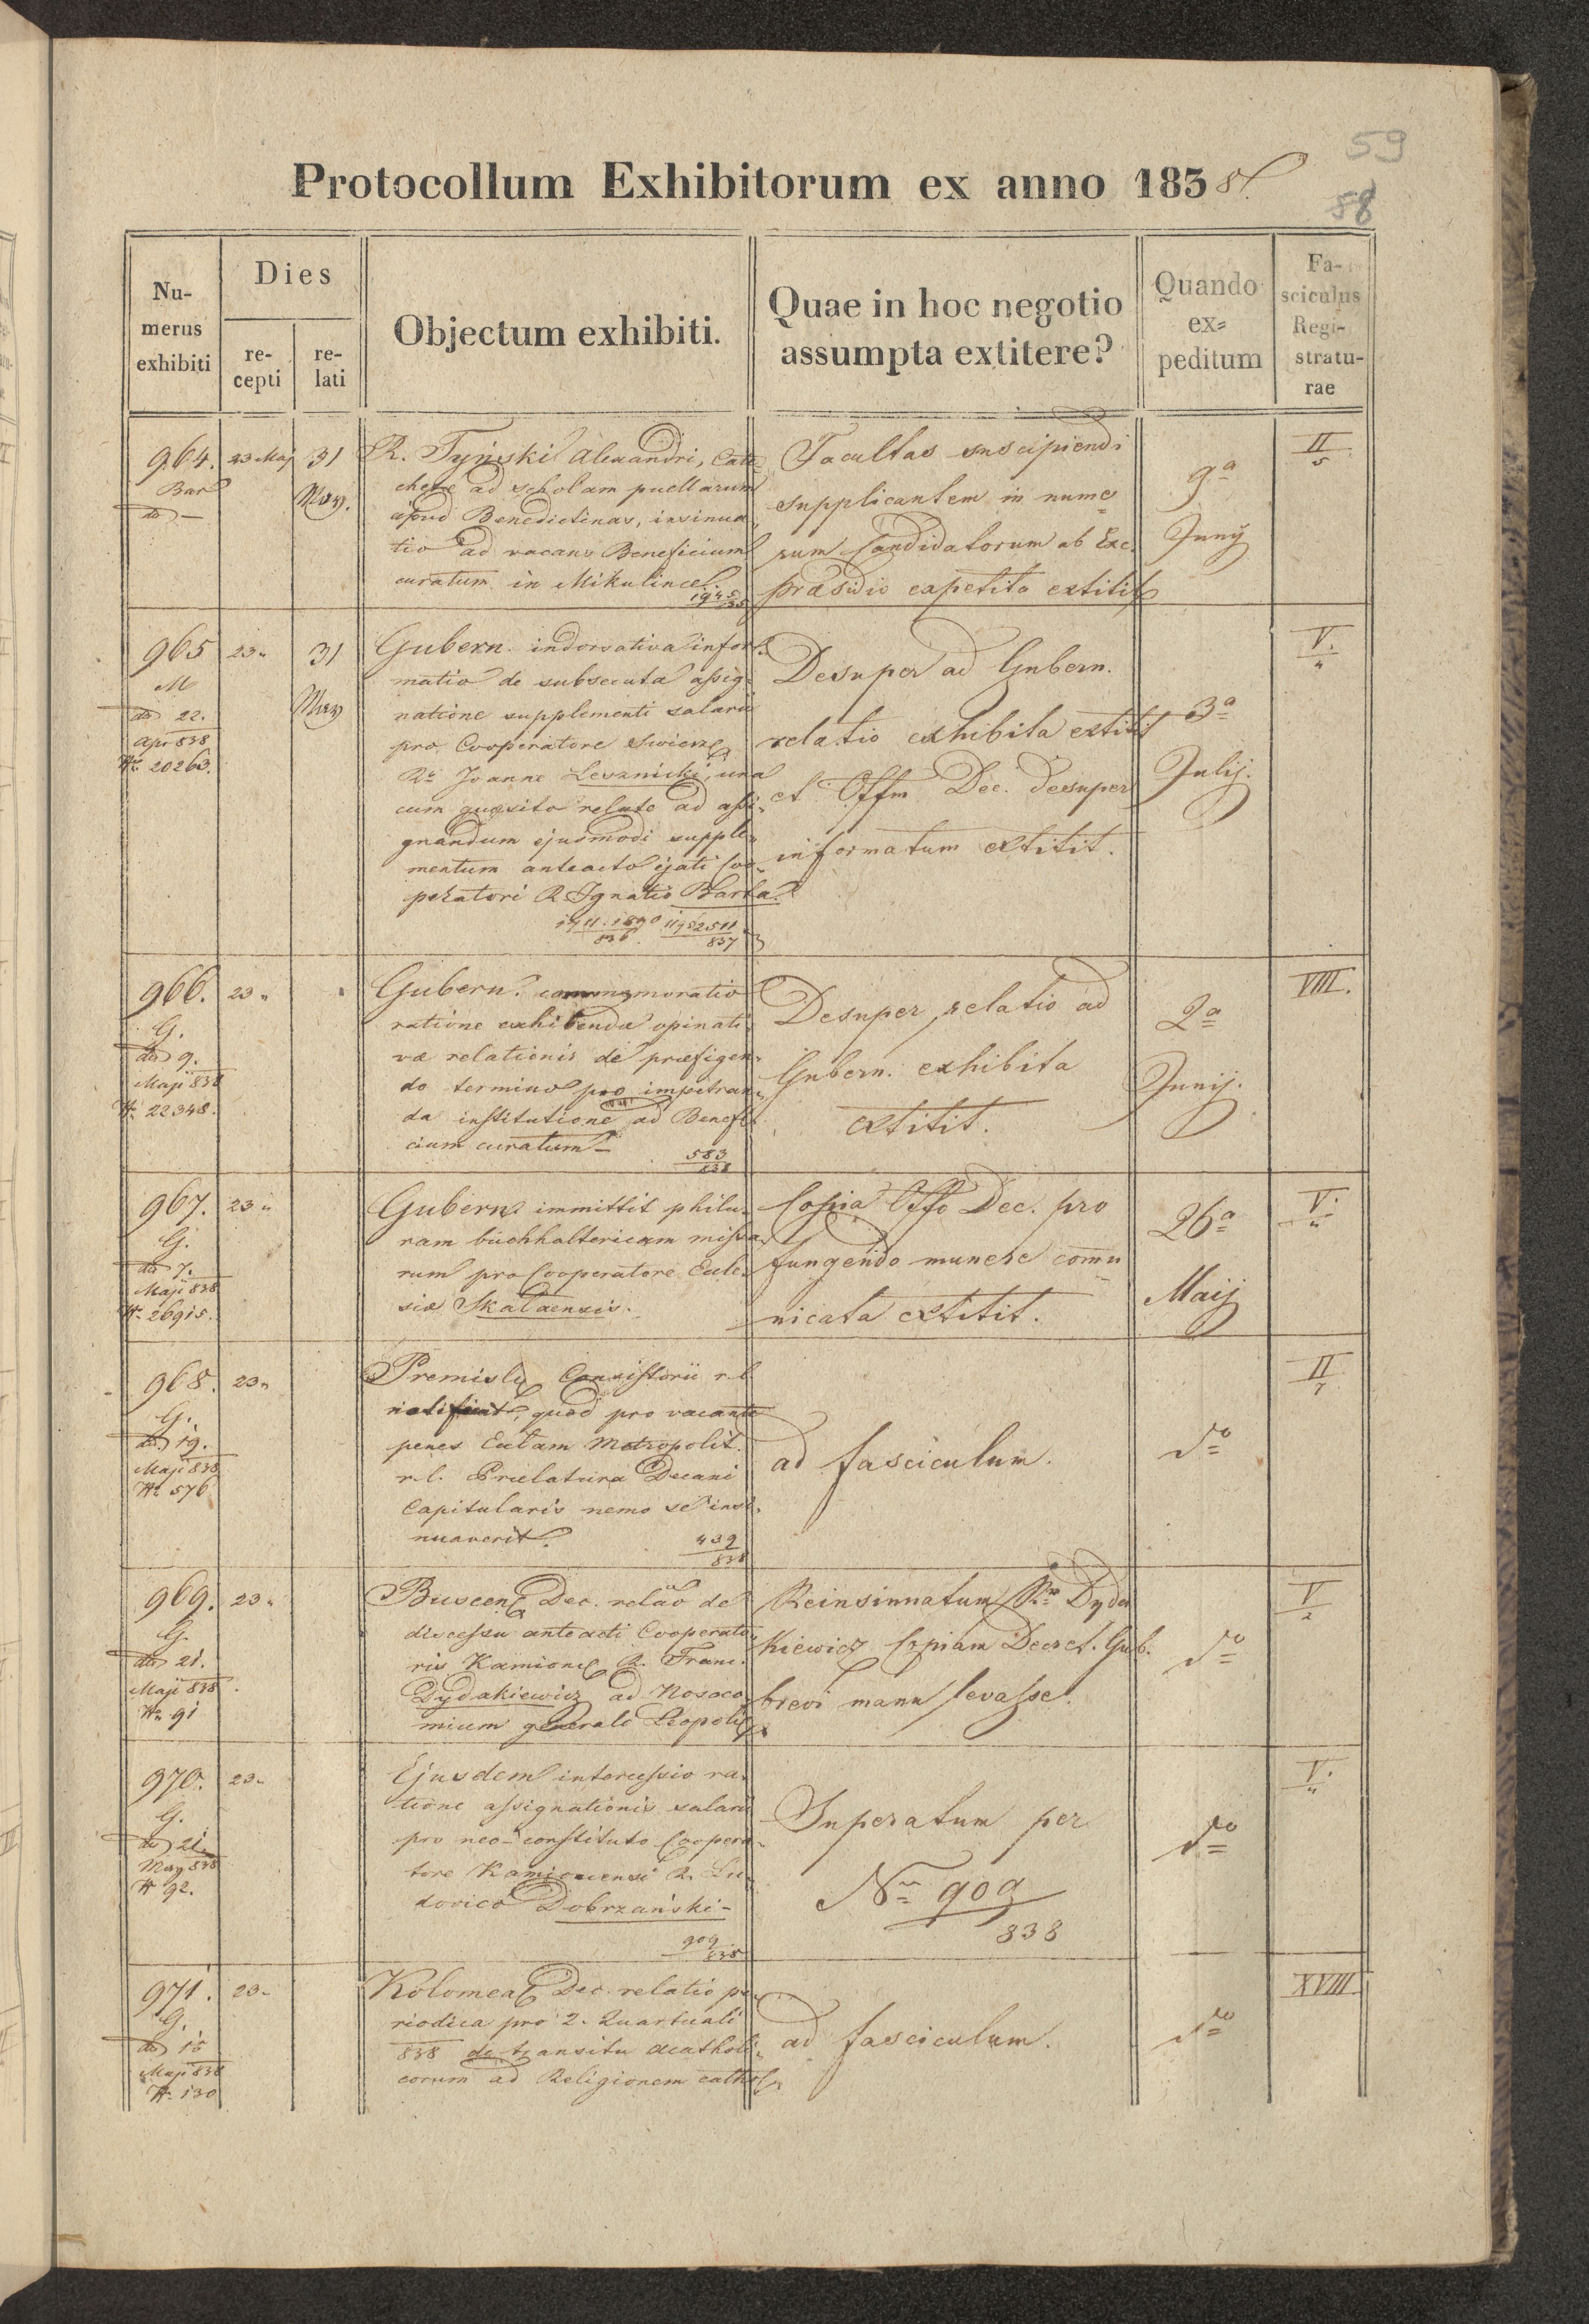 59
58
Protocollum Exhibitorum ex anno 1838.
Numerus exhibiti
Dies
recepti
relati
Objectum exhibiti.
Quae in hoc negotio assumpta extitere?
Quando expeditum
Fasciculus Registraturae
964.
Bar
dto —
23 Maj
31
May.
R. Tyński Alexandri, Cate-
chetae ad scholam puellarum
apud Benedictinas, insinua-
tio ad vacans Beneficium
curatum in Mikulince.
1945/35
Facultas suscipiendi
supplicantem in nume-
rum Candidatorum ab Exc.
praesidio expetita extitit
9a
Junij
II/5
965
M
dto 22.
Apr 838
Nr. 20263.
23 "
31
May
Gubern. indorsativa infor-
matio de subsecuta assig-
natione supplementi salarii
pro Cooperatore Swierz
Rdo Joanne Levznicki, una
cum quaesito relate ad assi-
gnandum ejusmodi supple-
mentum anteacto ejati Coo-
peratori R. Ignatio Barta.
1711.1890/836 1195.2511/837
Desuper ad Gubern.
relatio exhibita extitit
et Offm Dec. desuper
informatum extitit.
3a
Julij.
V./"
966.
G.
dto 9.
Maji 838
Nr. 22348.
23 "
Gubern. commemoratio
ratione exhibendae opinati-
vae relationis de praefigen-
do termino pro impetran-
da institutione ad Benefi-
cium curatum —
583/838
Desuper relatio ad
Gubern. exhibita
extitit.
2a
Junij.
VIII.
967.
G.
dto 7.
Maji 838
Nr. 26915.
23 "
Gubern. immittit philu-
ram buchhaltericam missa-
rum pro Cooperatore Eccle-
siae Skalaensis.
Copia Offo Dec. pro
fungendo munere comu-
nicata extitit.
26a
Maij
V./"
968.
G.
dto 19.
Maji 838
Nr. 576
23 "
Premisl. Consistorii r.l.
notificat, quod pro vacante
penes Ecclam Metropolit.
r.l. Praelatura Decani
Capitularis nemo se insi-
nuaverit.
439/838
ad fasciculum.
dto
II/7
969.
G.
dto 21.
Maji 838.
Nr. 91
23 "
Buscen. Dec. relao de
discessu anteacti Cooperato-
ris Kamionc. R. Franc.
Dydakiewicz ad Nosoco-
mium generale Leopoli
Reinsinuatum Rdo Dyda
kiewicz Copiam Decret. Gub.
brevi manu levasse.
dto
V/2
970.
G.
dto 21.
May 838
Nr 92.
23 "
Ejusdem intercessio ra-
tione assignationis salarii
pro neo-constituto Coopera-
tore Kamionensi R. Lu-
dovico Dobrzański —
909/838
Superatum per
Nr. 909/838
dto
V./"
971.
G.
dto 15
Maji 838
Nr. 130
23 "
Kolomeae Dec. relatio pe-
riodica pro 2. Quartuali
838 de transitu acatholi-
corum ad Religionem cathol.
ad fasciculum.
dto
XVIII.